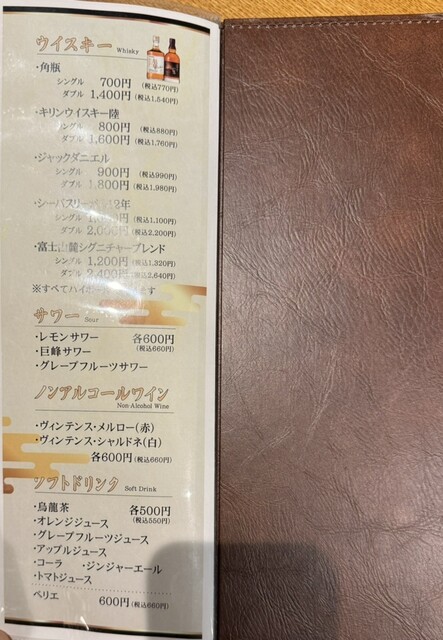 ウイスキー Whisky
・角瓶
シングル 700円 (税込770円)
ダブル 1,400円 (税込1,540円)
・キリンウイスキー陸
シングル 800円 (税込880円)
ダブル 1,600円 (税込1,760円)
・ジャックダニエル
シングル 900円 (税込990円)
ダブル 1,800円 (税込1,980円)
・シーバスリーガル12年
シングル 1,000円 (税込1,100円)
ダブル 2,000円 (税込2,200円)
・富士山麓シグニチャーブレンド
シングル 1,200円 (税込1,320円)
ダブル 2,400円 (税込2,640円)
※すべてハイボール
サワー Sour
・レモンサワー 各600円
・巨峰サワー (税込660円)
・グレープフルーツサワー
ノンアルコールワイン
Non Alcohol Wine
・ヴィンテンス・メルロー(赤)
・ヴィンテンス・シャルドネ(白)
各600円 (税込660円)
ソフトドリンク Soft Drink
・烏龍茶 各500円
・オレンジジュース (税込550円)
・グレープフルーツジュース
・アップルジュース
・コーラ ・ジンジャーエール
・トマトジュース
ペリエ 600円 (税込660円)